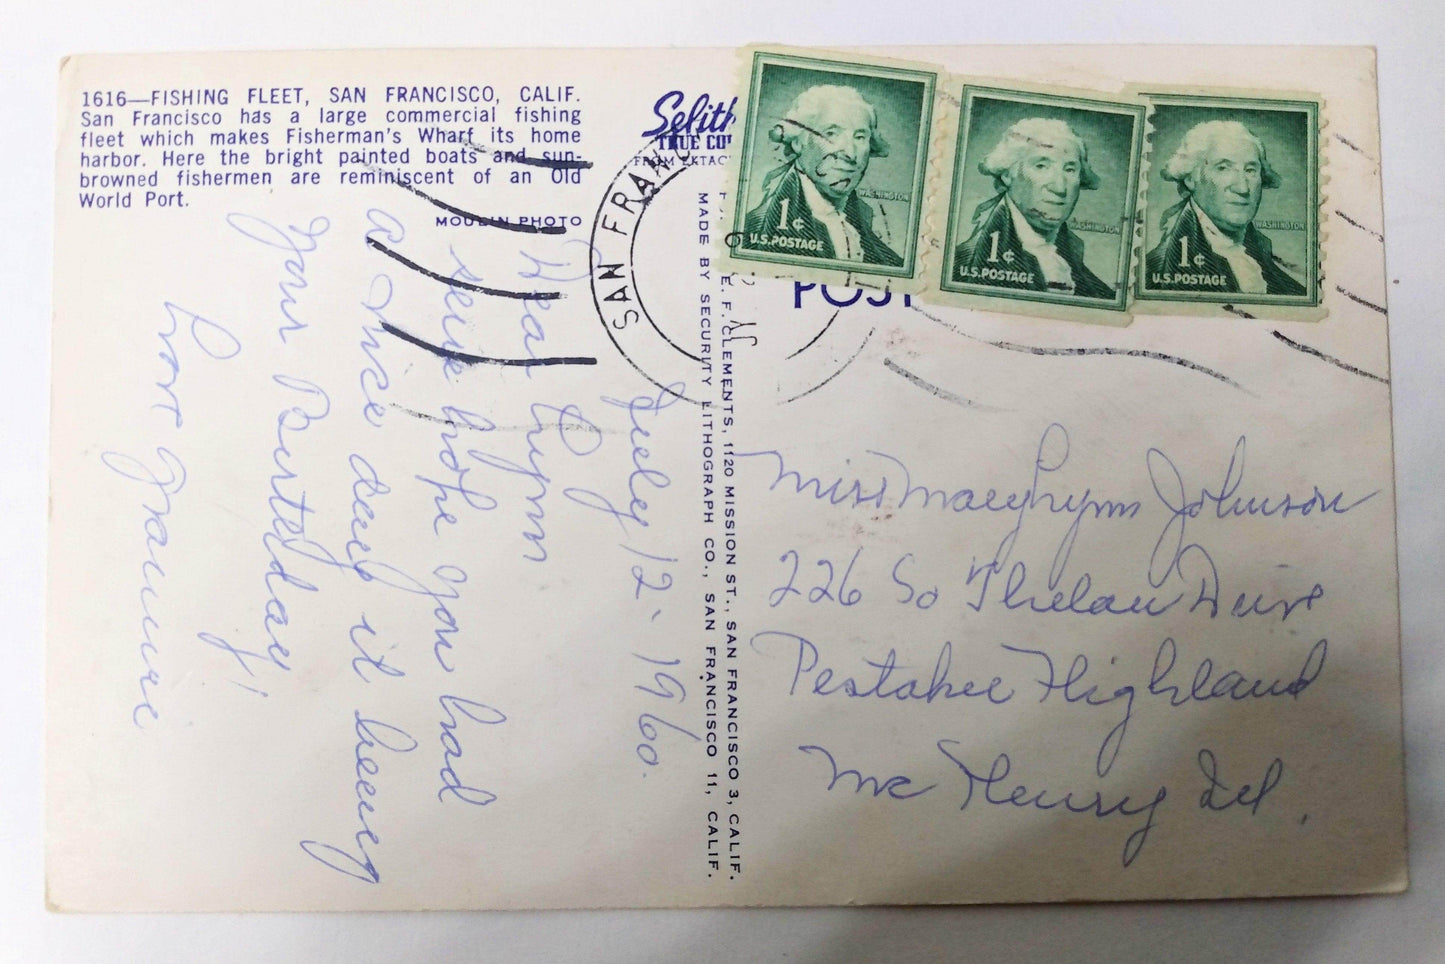 1616—FISHING FLEET, SAN FRANCISCO, CALIF.
San Francisco has a large commercial fishing
fleet which makes Fisherman's Wharf its home
harbor. Here the bright painted boats and sun-
browned fishermen are reminiscent of an Old
World Port.
MOULIN PHOTO
July 12 - 1960.
Dear Lynn
sure hope you had
a nice day it being
your Birthday!
Love
SAN FRANC
TRUE CO
FROM EKTAC
E. F. CLEMENTS, 1120 MISSION ST., SAN FRANCISCO 3, CALIF.
MADE BY SECURITY LITHOGRAPH CO., SAN FRANCISCO 11, CALIF.
POST
WASHINGTON
1¢
U.S. POSTAGE
WASHINGTON
1¢
U.S. POSTAGE
WASHINGTON
1¢
U.S. POSTAGE
Miss Mary Lynn Johnson
226 So Drive
Pestakee Highland
Mc Henry Ill.